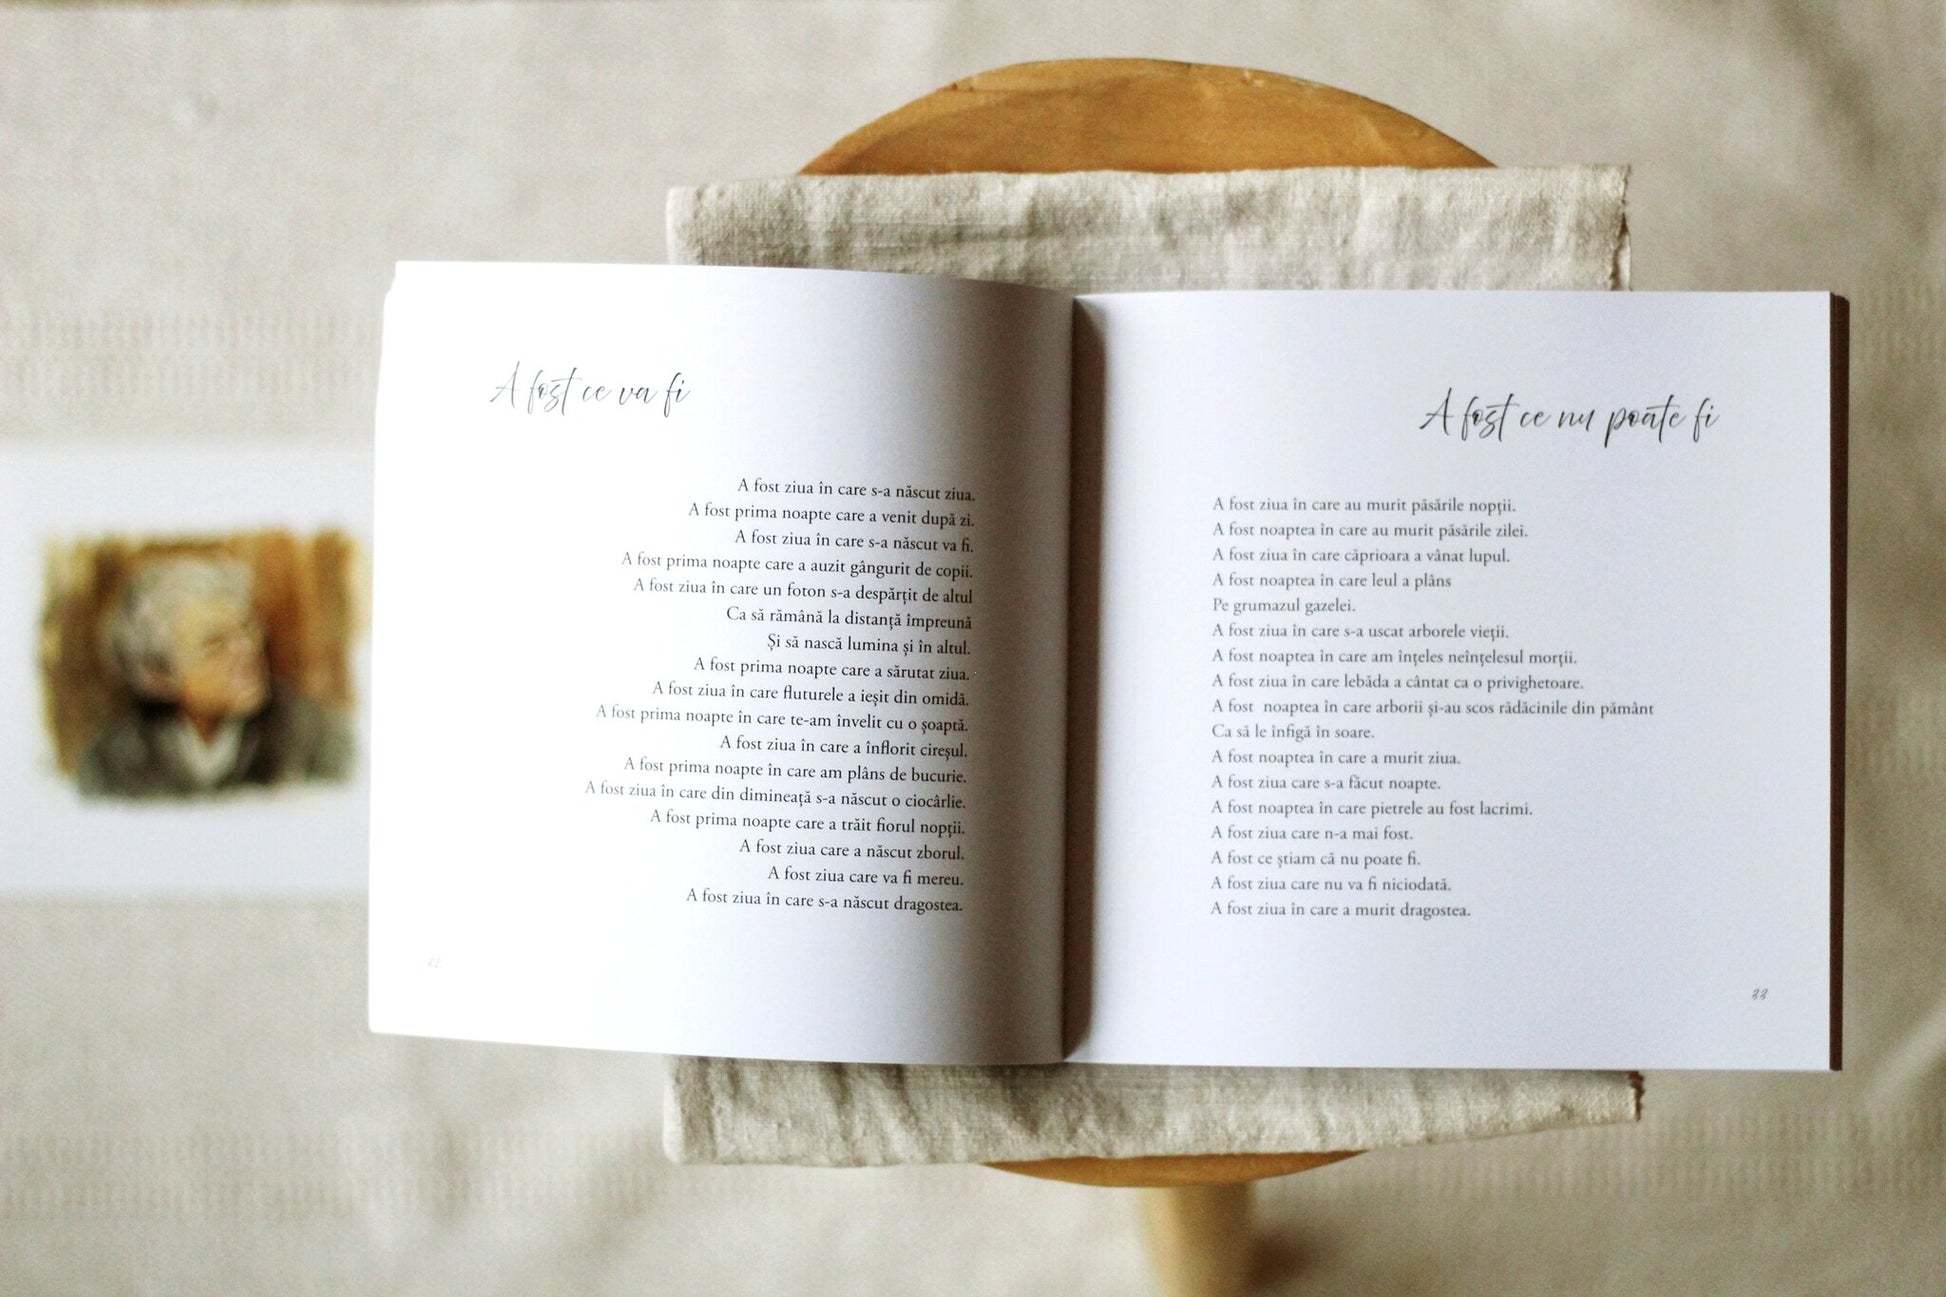 A fost ce va fi
A fost ziua în care s-a născut ziua.
A fost prima noapte care a venit după zi.
A fost ziua în care s-a născut va fi.
A fost prima noapte care a auzit gângurit de copii.
A fost ziua în care un foton s-a despărțit de altul
Ca să rămână la distanță împreună
Și să nască lumina și în altul.
A fost prima noapte care a sărutat ziua.
A fost ziua în care fluturele a ieșit din omidă.
A fost prima noapte în care te-am învelit cu o șoaptă.
A fost ziua în care a înflorit cireșul.
A fost prima noapte în care am plâns de bucurie.
A fost ziua în care din dimineață s-a născut o ciocârlie.
A fost prima noapte care a trăit fiorul nopții.
A fost ziua care a născut zborul.
A fost ziua care va fi mereu.
A fost ziua în care s-a născut dragostea.
A fost ce nu poate fi
A fost ziua în care au murit păsările nopții.
A fost noaptea în care au murit păsările zilei.
A fost ziua în care căprioara a vânat lupul.
A fost noaptea în care leul a plâns
Pe grumazul gazelei.
A fost ziua în care s-a uscat arborele vieții.
A fost noaptea în care am înțeles neînțelesul morții.
A fost ziua în care lebăda a cântat ca o privighetoare.
A fost noaptea în care arborii și-au scos rădăcinile din pământ
Ca să le înfigă în soare.
A fost noaptea în care a murit ziua.
A fost ziua care s-a făcut noapte.
A fost noaptea în care pietrele au fost lacrimi.
A fost ziua care n-a mai fost.
A fost ce știam că nu poate fi.
A fost ziua care nu va fi niciodată.
A fost ziua în care a murit dragostea.
33